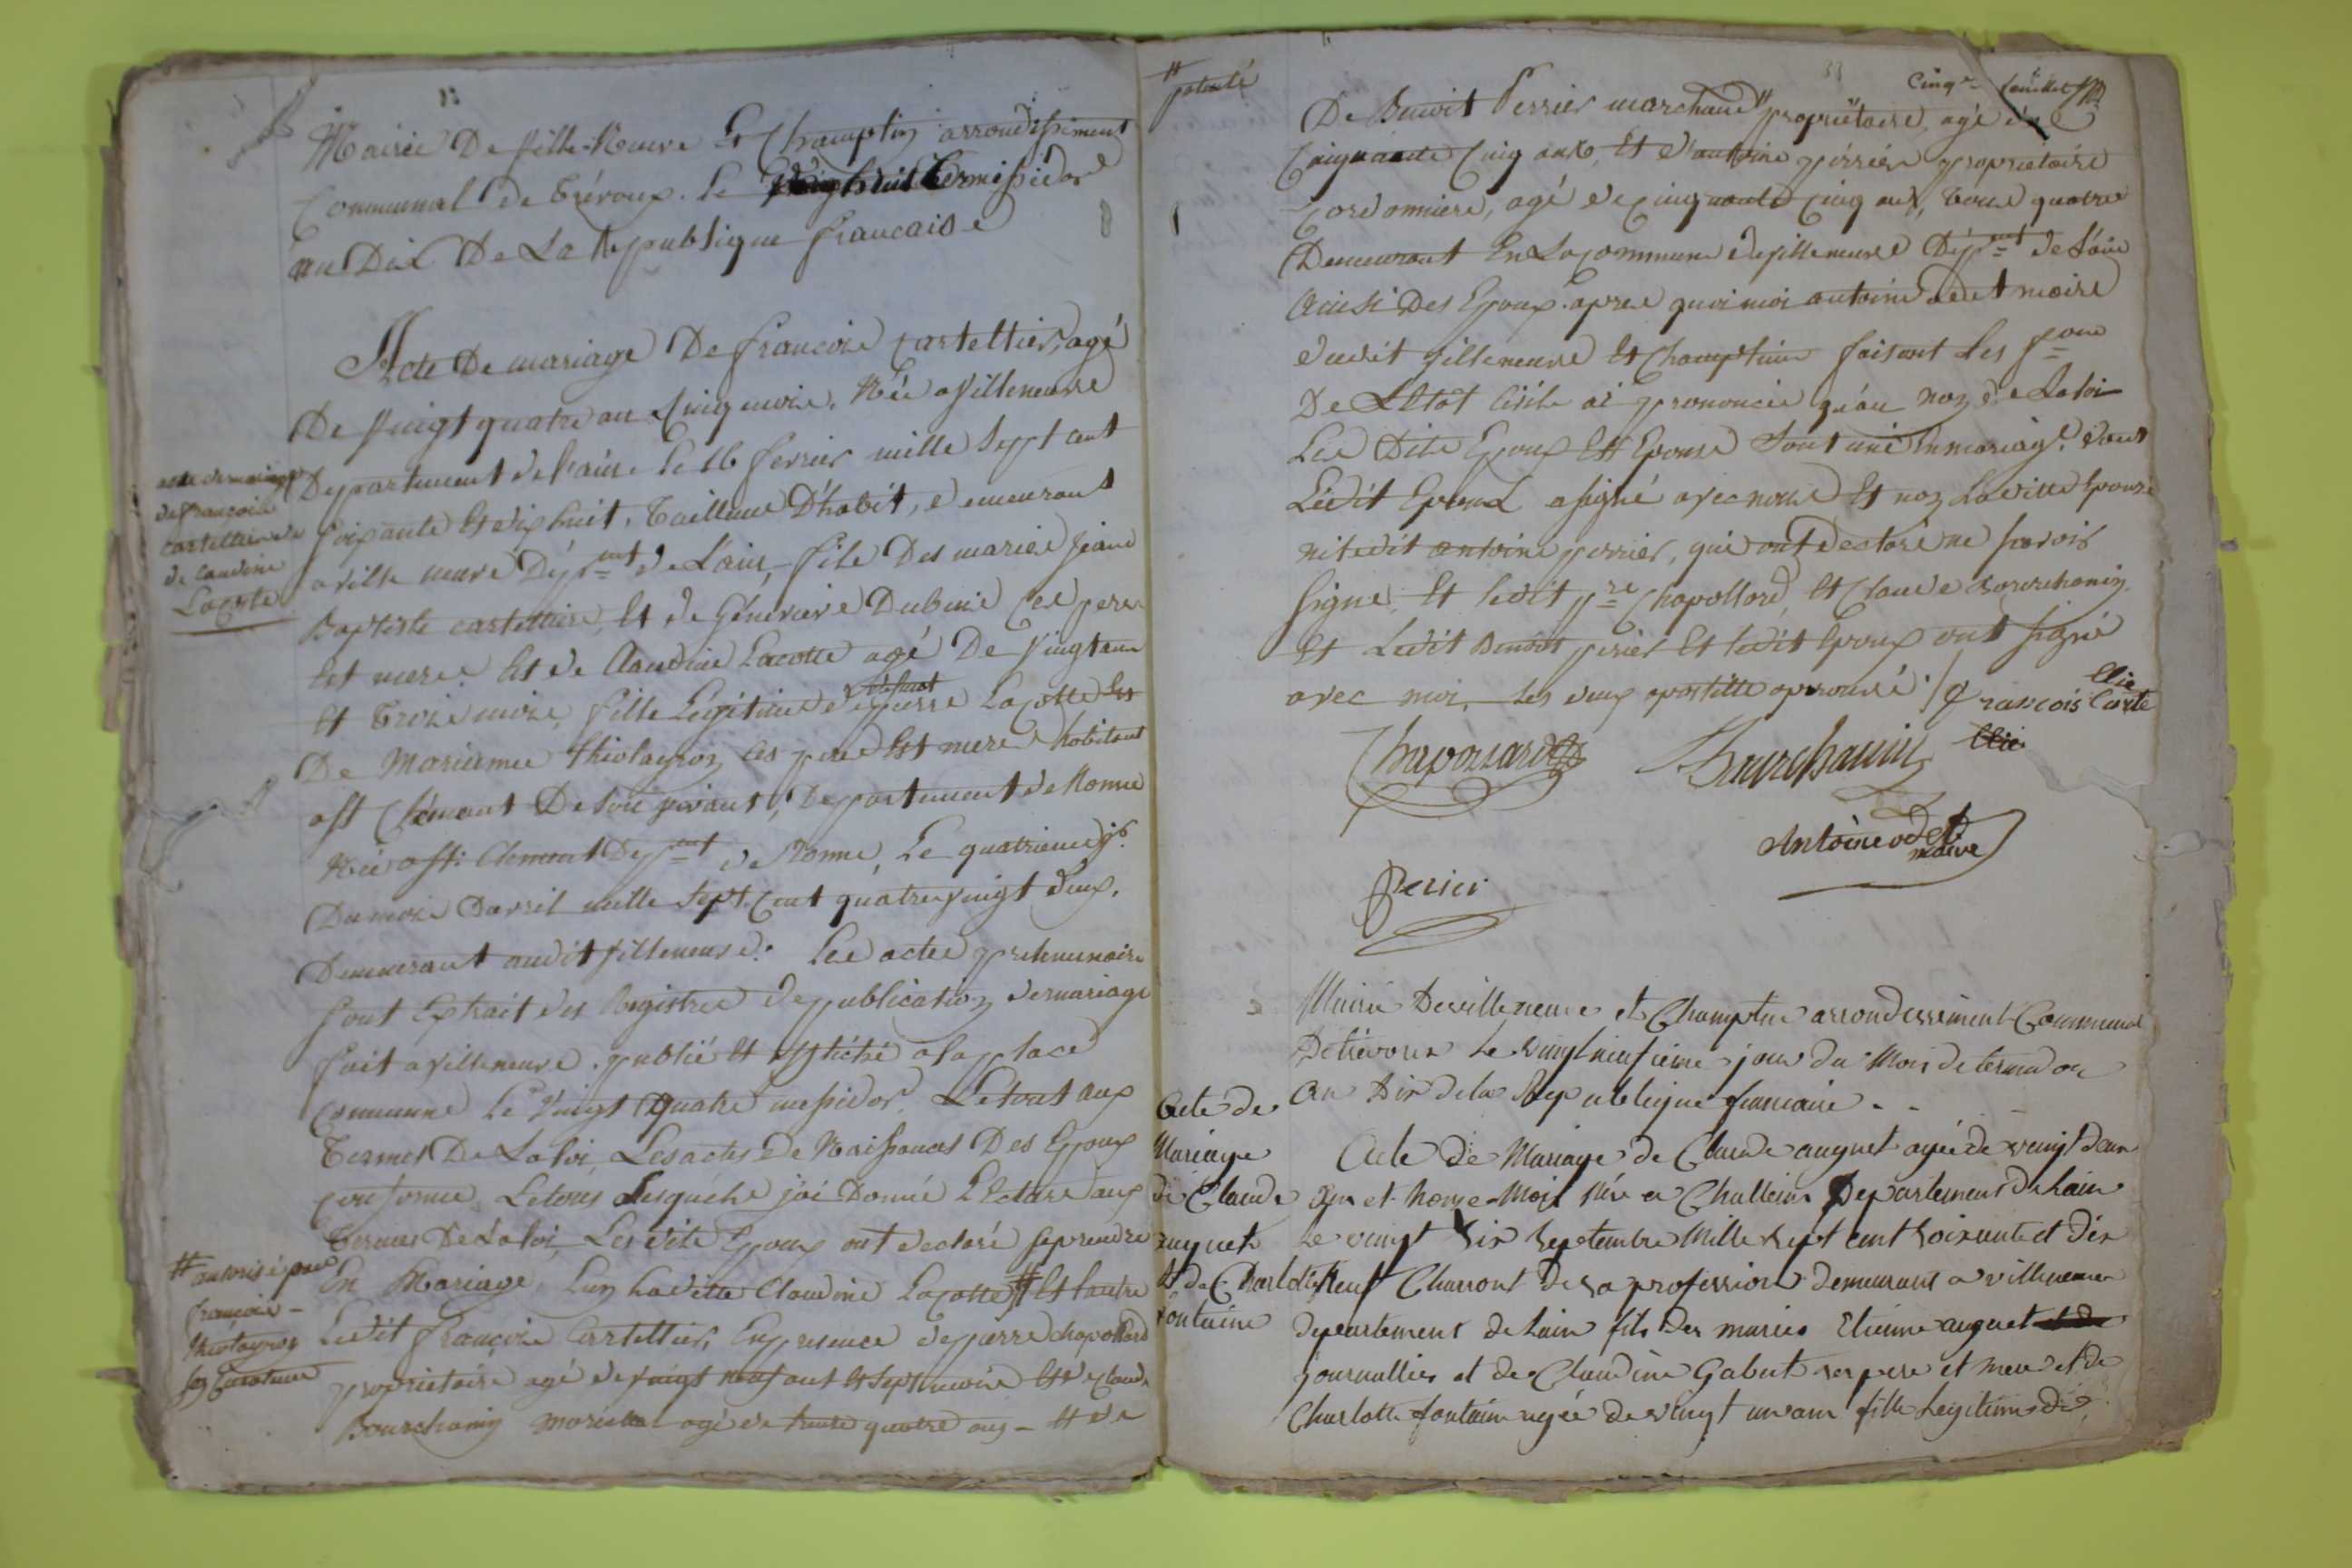 Mairie De ville-Neuve Et Champtin arrondissiment
Communal de trévoux. le vingt huit termisidor
an Dix De La Republique francaise
Acte De mariage De francoise cartellier, agé
De vingt quatre an cinq moise, Née a villeneuve
acte de mariage
de francoise
cartellier et
de claudine
Lacotte
Departement de l'ain le 16 fevrier mille sept cent
soixante et dix huit, tailleur D'habit, demeurant
a ville neuve Dépent de L'ain, file Des mariée jeane
Baptiste cartellier, Et de Génevieve Dubuis ces pere
Et mere. Et de Claudine Lacotte agé De vingt ans
Et troize moise, fille Legitime de defunt pierre Lacotte Et
De Marianne thiolayron ces pere Et mere habitant
a st Clémant De soie vivant, Departement de Ronne
Née a st: Clement Depent de Ronne, Le quatrieme jr.
Du moie Davril mille sept cent quatre vingt deux,
Demeurant audit villeneuve. Les actes preliminaire
sont extrait des Registre de publication de mariage
fait a villeneuve. publié et affiché a la place
commune le vingt quatre messidor. Le tout aux
termes De La loi, Les actes de Naissances Des Epoux
conforme. Le tous Lesquéhe j'ai Donné Lecture aux
termes De La loi, Les dite Epoux ont declaré se prendre
# autorisé par
francoise
thiolayron
son curateur
En Mariage, L'un Ladite Claudine Lacotte # Et lautre
Ledit francoise Cartellier, En presence de pierre chapollard
propriétaire agé de vingt neuf ans Et sept moise Et de Claude
Bourchanin agé de trente quatre ans - Et de
#
patenté
Cinqe feuillet
De Benoit Perrier marchand # propriétaire, agé de
Cinquante Cinq ans, Et d'antoine perrier propriétaire
Cordonniere, agé de Cinquante Cinq ans, tous quatre
Demeurant En La commune de villeneuve Dépent de L'ain
Ainsi Des Epoux. apres quoi moi antoine odet maire
dudit villeneuve Et Champtin faisant Les fons
De L'Etat Civile ai prononcée qu'au nom de La loi
Les Dite Epoux Et Epouse sont unie En mariage. dont
Ledit Epoux a signé avec nous Et non Ladite Epouse
ni ledit antoine perrier, qui ont declaré ne savoir
signe, Et ledit pre Chapollard, Et Claude Bourchanin
Et Ledit Benoit perier Et ledit Epoux ont signé
avec moi, Les deux apostille aprouvé. françois Carte
llie
Chapollard
Bourchanin
llie
Antoine odet
maire
Perier
Mairie De villeneuve et Champtin arrondissement Communal
De trévoux le vingt neufieme jour du Mois de termidor
an Dix de la Republique francaise . -
Acte de
Mariage
de Claude
auguet
et de Charlotte
fontaine
Acte de Mariage de Claude auguet agée de vingt deux
an et honze Mois Née a Challeins Departement de Lain
Le vingt six septembre Mille sept cent soixante et dix
Neuf Charront de sa profession demeurant a villeneuve
departement de Lain fils des mariés Etienne auguet et de
journallier et de Claudine Gabut ses pere et mere et de
Charlotte fontaine agée de vingt un ans fille Legitime de